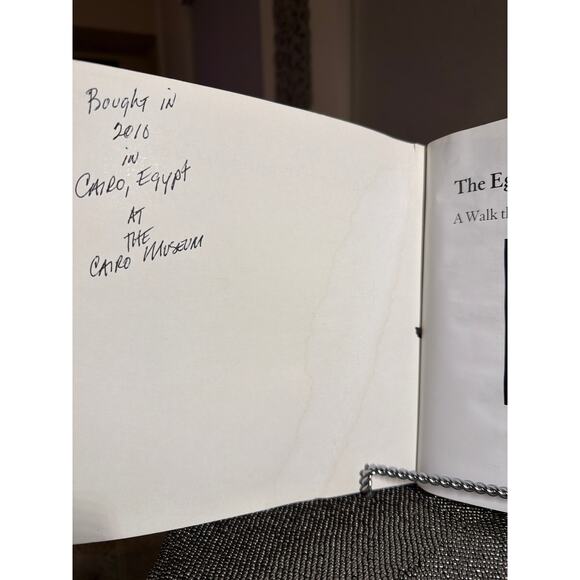 Bought in
2010
in
Cairo, Egypt
AT
THE
Cairo Museum
The Eg
A Walk th